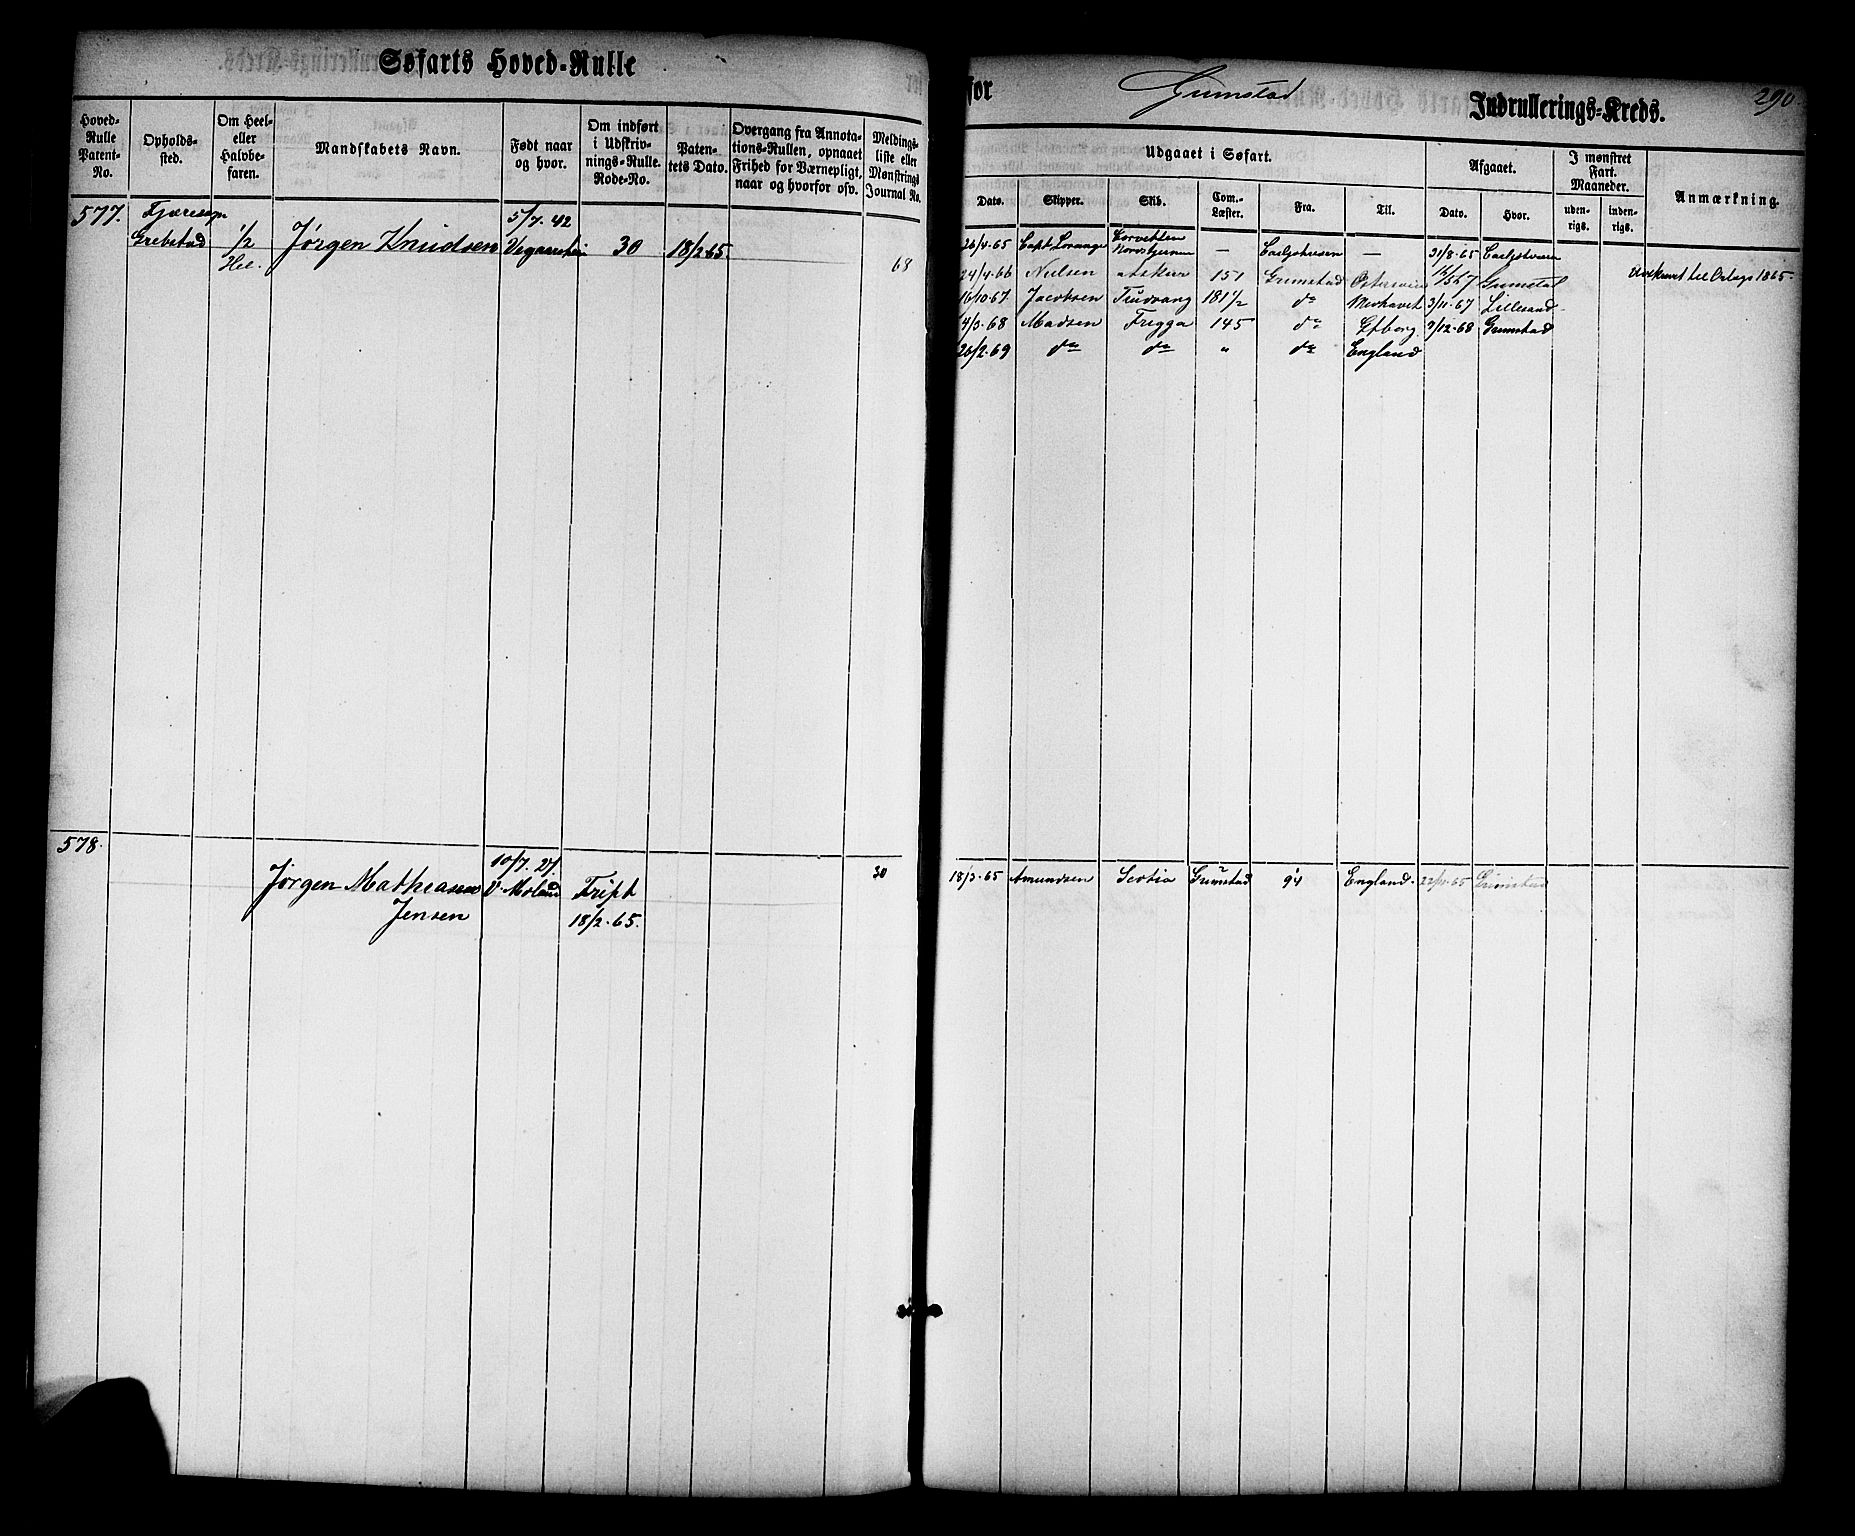 Søfarts Hoved-Rulle
for Grimstad Indrullerings-Kreds.
290.
Hoved-Rulle Patent-No.
Opholds-sted.
Om Heel- eller Halvbe-faren.
Mandskabets Navn.
Født naar og hvor.
Om indført i Udskriv-nings-Rulle. Rode-No.
Paten-tets Dato.
Overgang fra Annota-tions-Rullen, opnaaet Frihed for Værnepligt, naar og hvorfor osv.
Meldings-liste eller Mønstrings Journal No.
Udgaaet i Søfart.
Afgaaet.
I mønstret Fart. Maaneder.
Anmærkning
Dato. Skipper. Skib. Com.-Læster. Fra. Til. Dato. Hvor. uden-rigs. inden-rigs.
577. Fjæresogn 5/7. 42
Grebstad 1/2 Jørgen Knudsen Vegaarshei 30 18/2 65.
Hel. 68
26/4-65 Capt. Lorange Corvetten Nordstjernen — Carljohansv — 31/8-65 Carljohansv
24/4-66 Nielsen 151 Grimstad Østersøen 67 Grimstad Udskrevet til Orlogs 1865.
16/10-67. Jacobsen Trudvang 181 1/2 do Nordhavet 3/11-67 Lillesand
4/3-68 Madsen Frigga 145 do Gtborg 7/12-68 Grimstad
26/2-69 do do " do England
578.
10/7. 27.
Jørgen Mathiasen V. Moland Fript 30
Jensen 18/2-65.
18/3-65 Amundsen Scotia Grimstad 94 England. 22/11-65 Grimstad